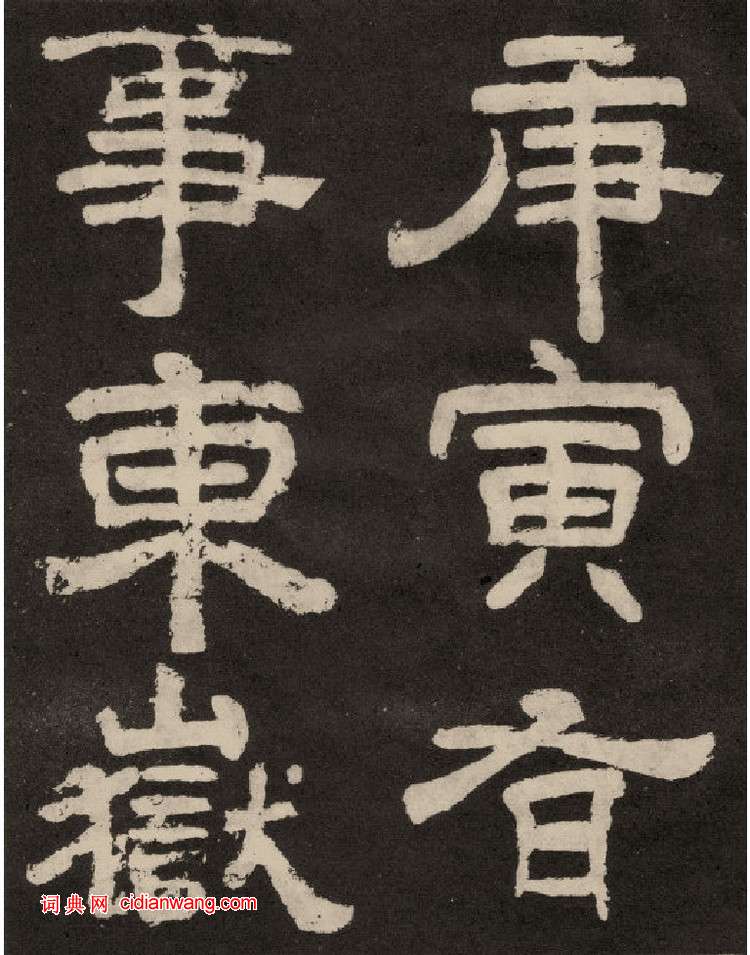 庚寅有
事東嶽
词典网 cidianwang.com